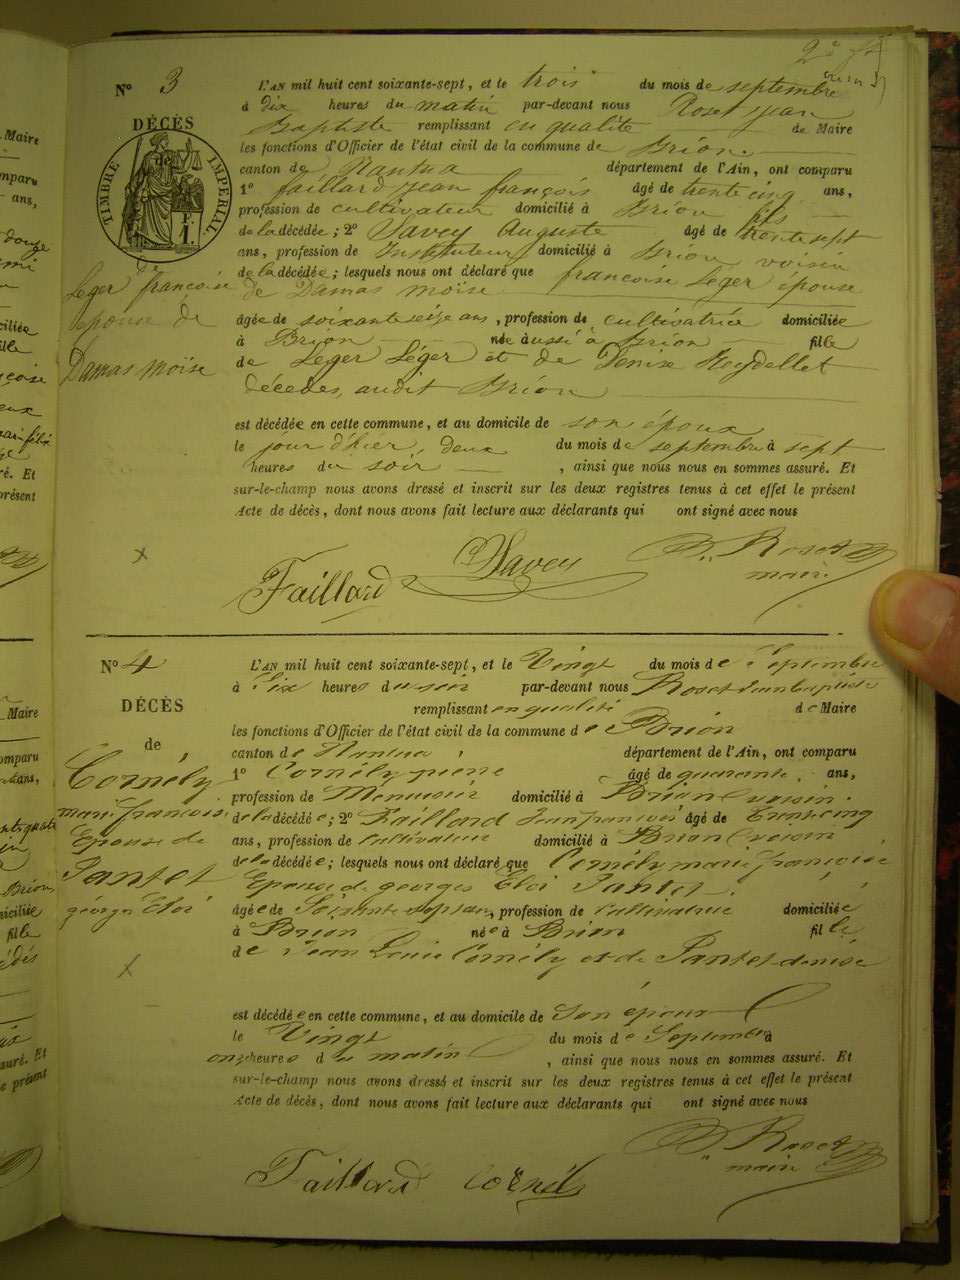 N° 3
DÉCÈS
TIMBRE IMPÉRIAL
de
Leger françoise
épouse de
Damas Moïse
L'AN mil huit cent soixante-sept, et le trois du mois de septembre
à dix heures du matin par-devant nous Roset Jean
Baptiste remplissant en qualité de Maire
les fonctions d'Officier de l'état civil de la commune de Brion.
canton de Nantua département de l'Ain, ont comparu
1° faillard jean françois âgé de trente cinq ans,
profession de cultivateur domicilié à Brion fils
de la décédée ; 2° Savey Auguste âgé de trente sept
ans, profession de Instituteur domicilié à Brion voisin
de la décédée ; lesquels nous ont déclaré que françoise Leger épouse
de Damas Moïse
âgée de soixante seize ans, profession de cultivatrice domiciliée
à Brion née aussi à Brion fille
de Leger Léger et de Denise Reydellet
décédés, audit Brion
est décédée en cette commune, et au domicile de son époux
le jour d'hier, deux du mois de septembre à sept
heures du soir , ainsi que nous nous en sommes assuré. Et
sur-le-champ nous avons dressé et inscrit sur les deux registres tenus à cet effet le présent
Acte de décès, dont nous avons fait lecture aux déclarants qui ont signé avec nous
Faillard Savey Roset
maire
N° 4
DÉCÈS
de
Cornély
marie françoise
Epouse de
Santet
géorges Eloi
L'AN mil huit cent soixante-sept, et le Vingt du mois de Septembre
à Six heures du soir par-devant nous Roset Jean baptiste
remplissant en qualité de Maire
les fonctions d'Officier de l'état civil de la commune de Brion
canton de Nantua , département de l'Ain, ont comparu
1° Cornély pierre âgé de quarante ans,
profession de Menuisier domicilié à Brion voisin.
de la décédée ; 2° Faillard Jean françois âgé de Trente cinq
ans, profession de cultivateur domicilié à Brion voisin
de la décédée ; lesquels nous ont déclaré que Cornély marie françoise
Epouse de georges Eloi Santet.
âgée de Soixante sept ans, profession de Cultivatrice domiciliée
à Brion née à Brion fille
de Jean Louis Cornély et de Santet denise
est décédée en cette commune, et au domicile de Son époux
le Vingt du mois de Septembre à
onze heures du matin , ainsi que nous nous en sommes assuré. Et
sur-le-champ nous avons dressé et inscrit sur les deux registres tenus à cet effet le présent
Acte de décès, dont nous avons fait lecture aux déclarants qui ont signé avec nous
Faillard Cornély Roset
maire